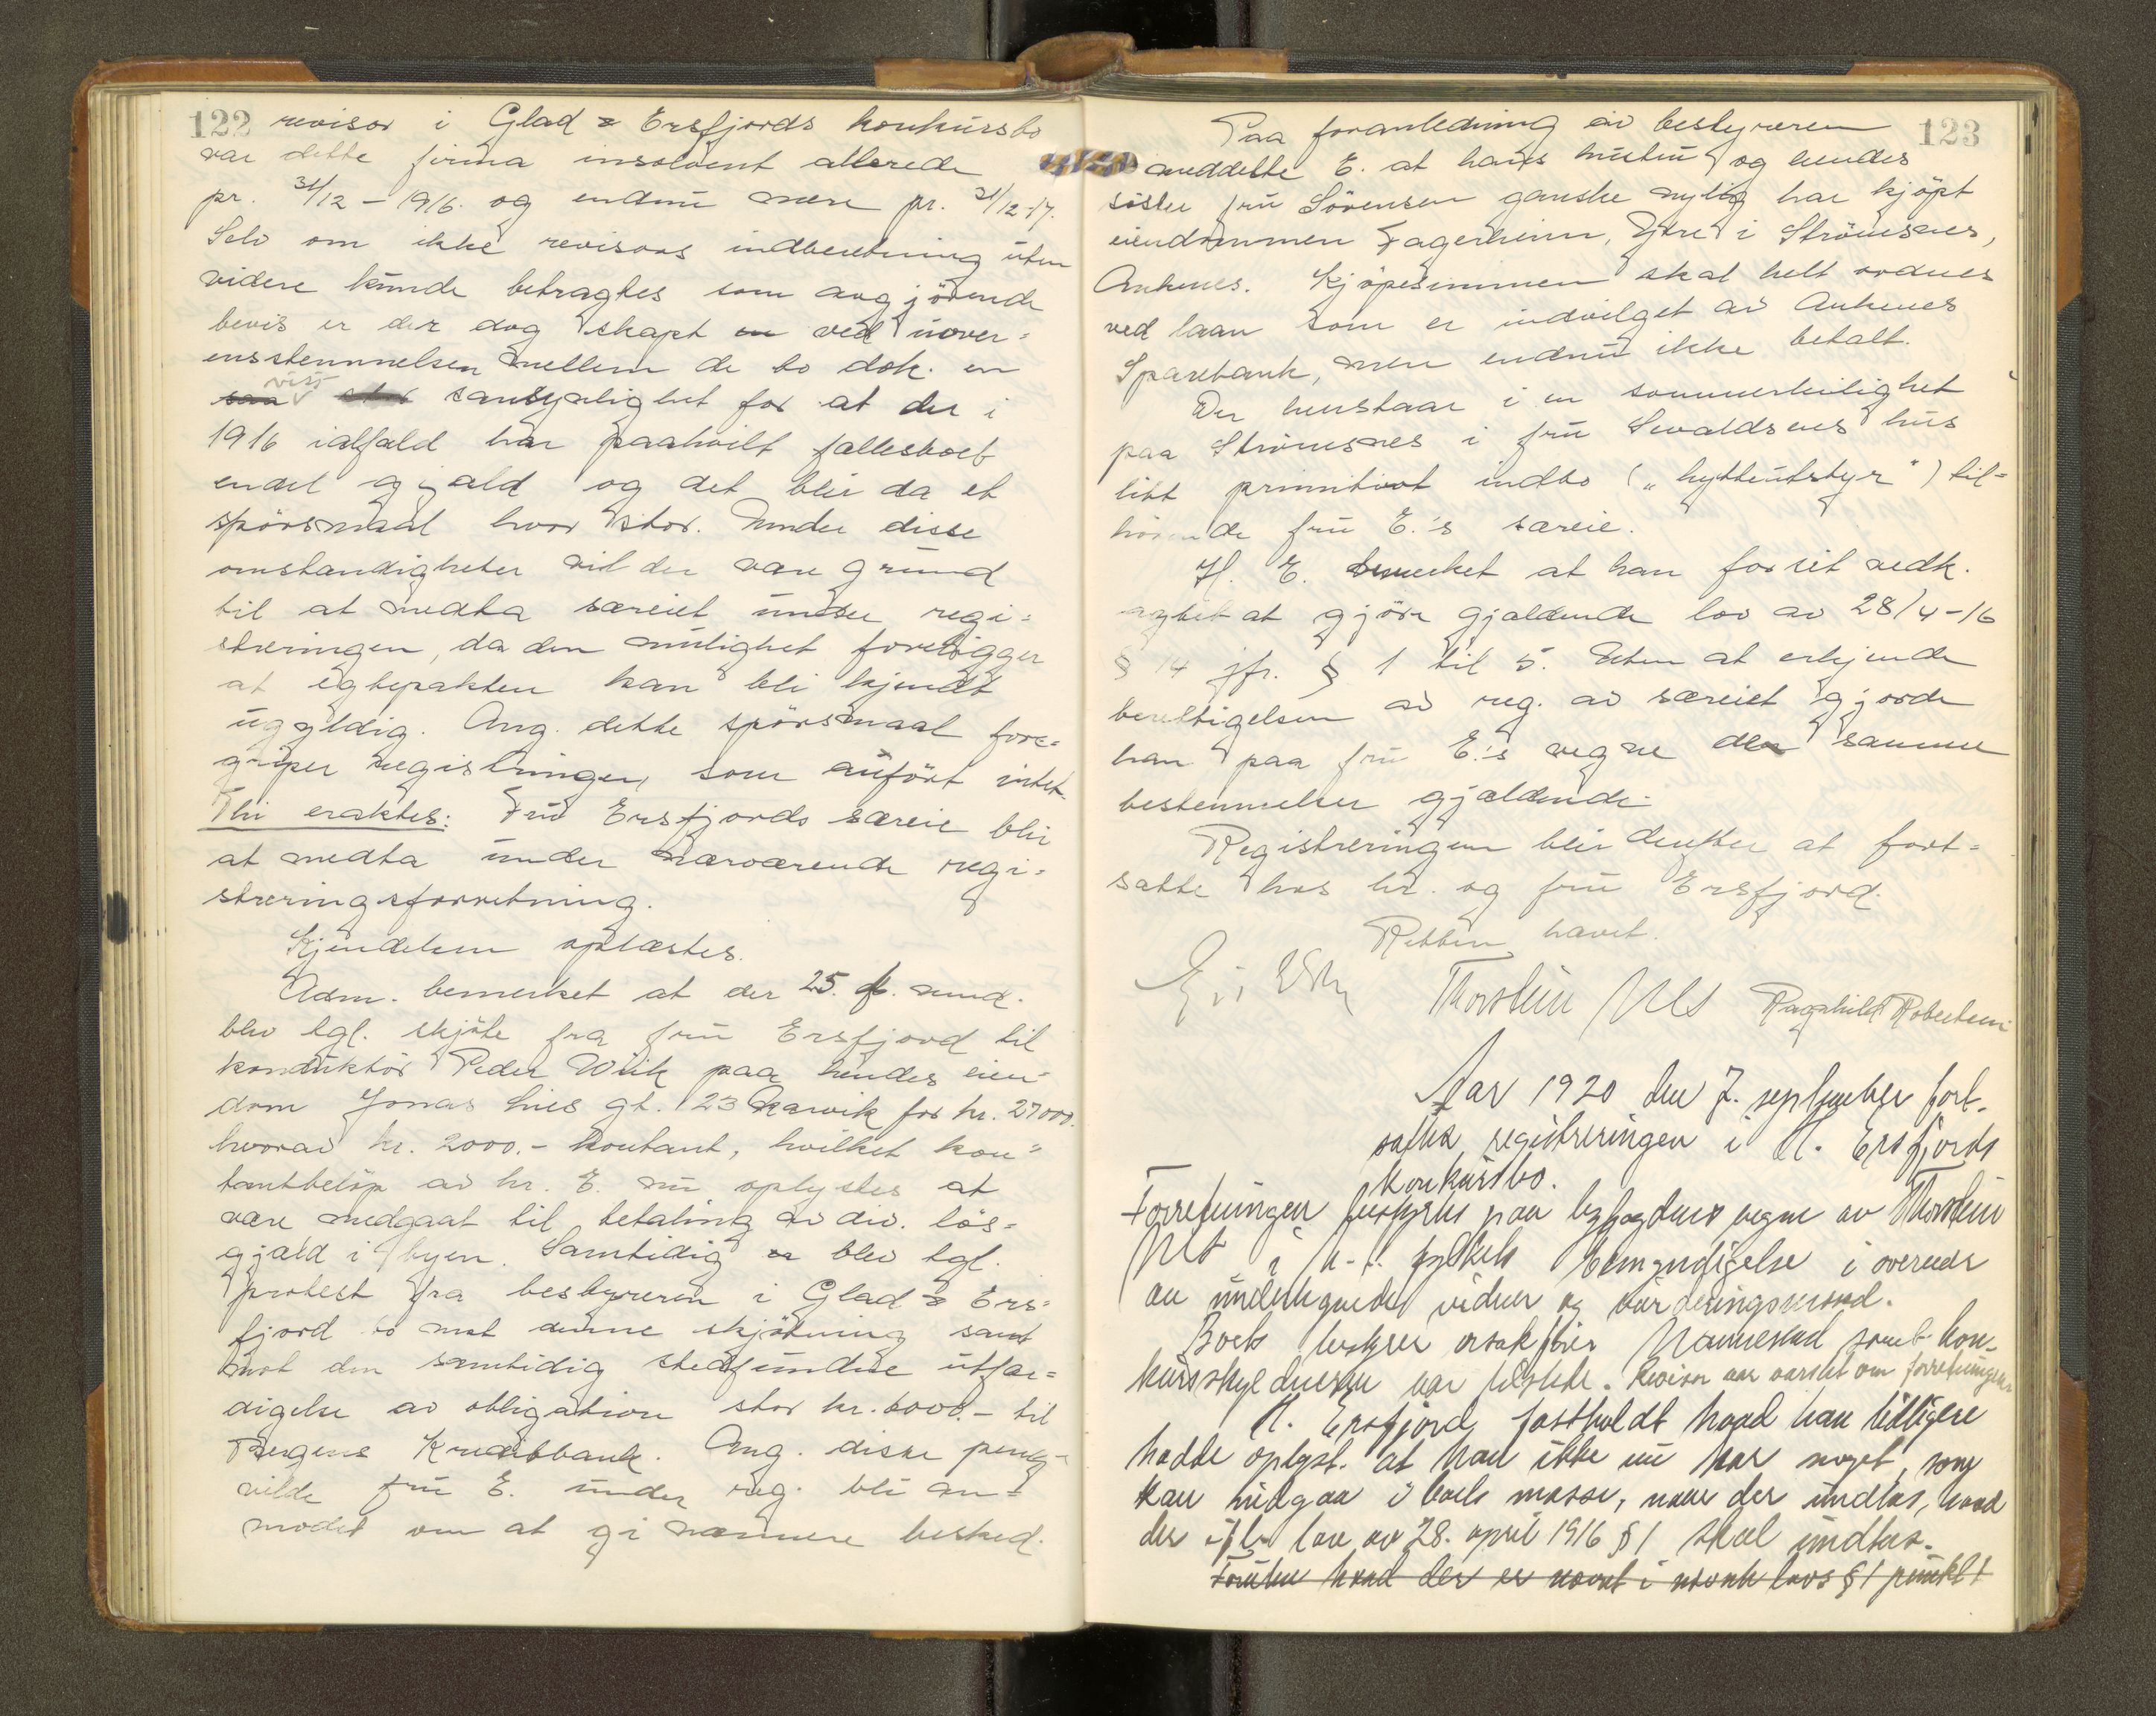 122 revisor i Glad & Ersfjords konkursbo
var dette firma insolvent allerede
pr. 31/12 - 1916. og endnu mere pr. 31/12-17.
Selv om ikke revisors indberetning uten
videre kunde betragtes som avgjörende
bevis er der dog skapt en ved uover=
ensstemmelsen mellem de to dok. en
saa viss stor sansynlighet for at der i
1916 ialfald har paahvilt fællesboet
endel gjæld og det blir da et
spörsmaal hvor stor. Under disse
omstændigheter vil der være grund
til at medta særeiet under regi=
streringen, da den mulighet foreligger
at egtepakten kan bli kjendt
ugyldig. Ang. dette spörsmaal fore=
griper registringen, som anfört intet.
Thi eraktes: Fru Ersfjords særeie blir
at medta under nærværende regi=
streringsforretning.
Kjendelsen oplæstes.
Adm. bemerket at der 25. f. mnd.
blev tgl. skjöte fra fru Ersfjord til
konduktör Peder Wiik paa hendes eien=
dom Jonas hus gt. 23 Narvik for kr. 27000.
hvorav kr. 2000.- kontant, hvilket kon=
tantbelöp av hr. E. nu oplystes at
være medgaat til betaling av div. lös=
gjæld i byen. Samtidig er blev tgl.
protest fra bestyreren i Glad & Ers=
fjord bo mot denne skjötning samt
mot den samtidig stedfundne utfær=
digelse av obligation stor kr. 6000.- til
Bergens Kreditbank. Ang. disse penge
vilde fru E. under reg. bli an=
modet om at gi nærmere besked.
123
Paa foranledning av bestyreren
meddelte E. at hans hustru og hendes
söster fru Sörensen ganske nylig har kjöpt
eiendommen Fagerheim, Ytre i Strömsnes,
Ankenes. Kjöpesummen skal helt ordnes
ved laan som er indvilget av Ankenes
Sparebank, men endnu ikke betalt.
Der henstaar i en sommerleilighet
paa Strömsnes i fru Sivaldsens hus
litt primitivt indbo ("hytteutstyr") til=
hörende fru E.'s særeie.
H. E. bemerket at han for sit vedk.
agtet at gjöre gjældende lov av 28/4-16
§ 14 jfr. § 1 til 5. Uten at erkjende
berettigelsen av reg. av særeiet gjorde
han paa fru E.'s vegne de samme
bestemmelser gjældende.
Registreringen blir derefter at fort=
sætte hos hr. og fru Ersfjord.
Retten hævet.
Thorstein Ragnhild Robertsen
Aar 1920 den 7. september fort-
sattes registreringen i H. Ersfjords
konkursbo.
Forretningen bestyrtes paa byfogdens vegne av Thorstein
i h. t. fylkets bemyndigelse i overvær
av undertegnede vidner og vurderingsmænd.
Boets bestyrer orsakförer Nannestad samt kon-
kursskyldneren var tilstede. Revisor var varslet om forretningen.
H. Ersfjord fastholdt hvad han tidligere
hadde oplyst. at han ikke nu har noget, som
kan indgaa i boets masse, naar der undtas, hvad
der ifl. lov av 28. april 1916 § 1 skal undtas.
Foruten hvad der er nævnt i nævnte lovs § 1 punkt 1